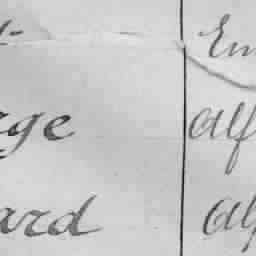 Em
rge Alf
ard Alf